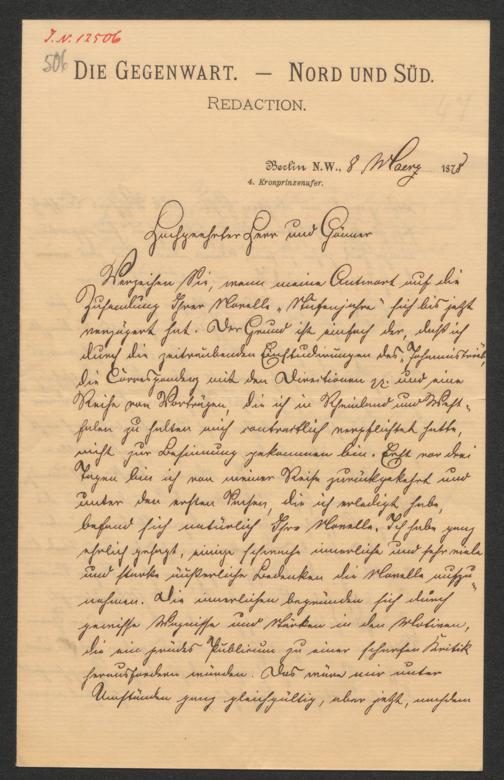 J.N. 12506
506
DIE GEGENWART. — NORD UND SÜD.
REDACTION.
47
Berlin N.W., 8 Maerz 1878
4. Kronprinzenufer.
Hochgeehrter Herr und Gönner
Verzeihen Sie, wenn meine Antwort auf die
Zusendung Ihrer Novelle „ " sich bis jetzt
verzögert hat. Der Grund ist einfach der, daß ich
durch die zeitraubenden Einstudirungen des „Johannistrieb",
die Correspondenz mit den Directionen pp. und eine
Reihe von Vorträgen, die ich in Rheinland und West-
falen zu halten mich contractlich verpflichtet hatte,
nicht zur Besinnung gekommen bin. Erst vor drei
Tagen bin ich von meiner Reise zurückgekehrt und
unter den ersten Sachen, die ich erledigt habe,
befand sich natürlich Ihre Novelle. Ich habe ganz
ehrlich gesagt, einige schwache innerliche und sehr viele
und starke äußerliche Bedenken die Novelle aufzu-
nehmen. Die innerlichen begründen sich durch
gewisse Wagnisse und Stärken in den Motiven,
die ein prüdes Publicum zu einer scharfen Kritik
herausfordern würden. Das wäre mir unter
Umständen ganz gleichgültig, aber jetzt, nachdem